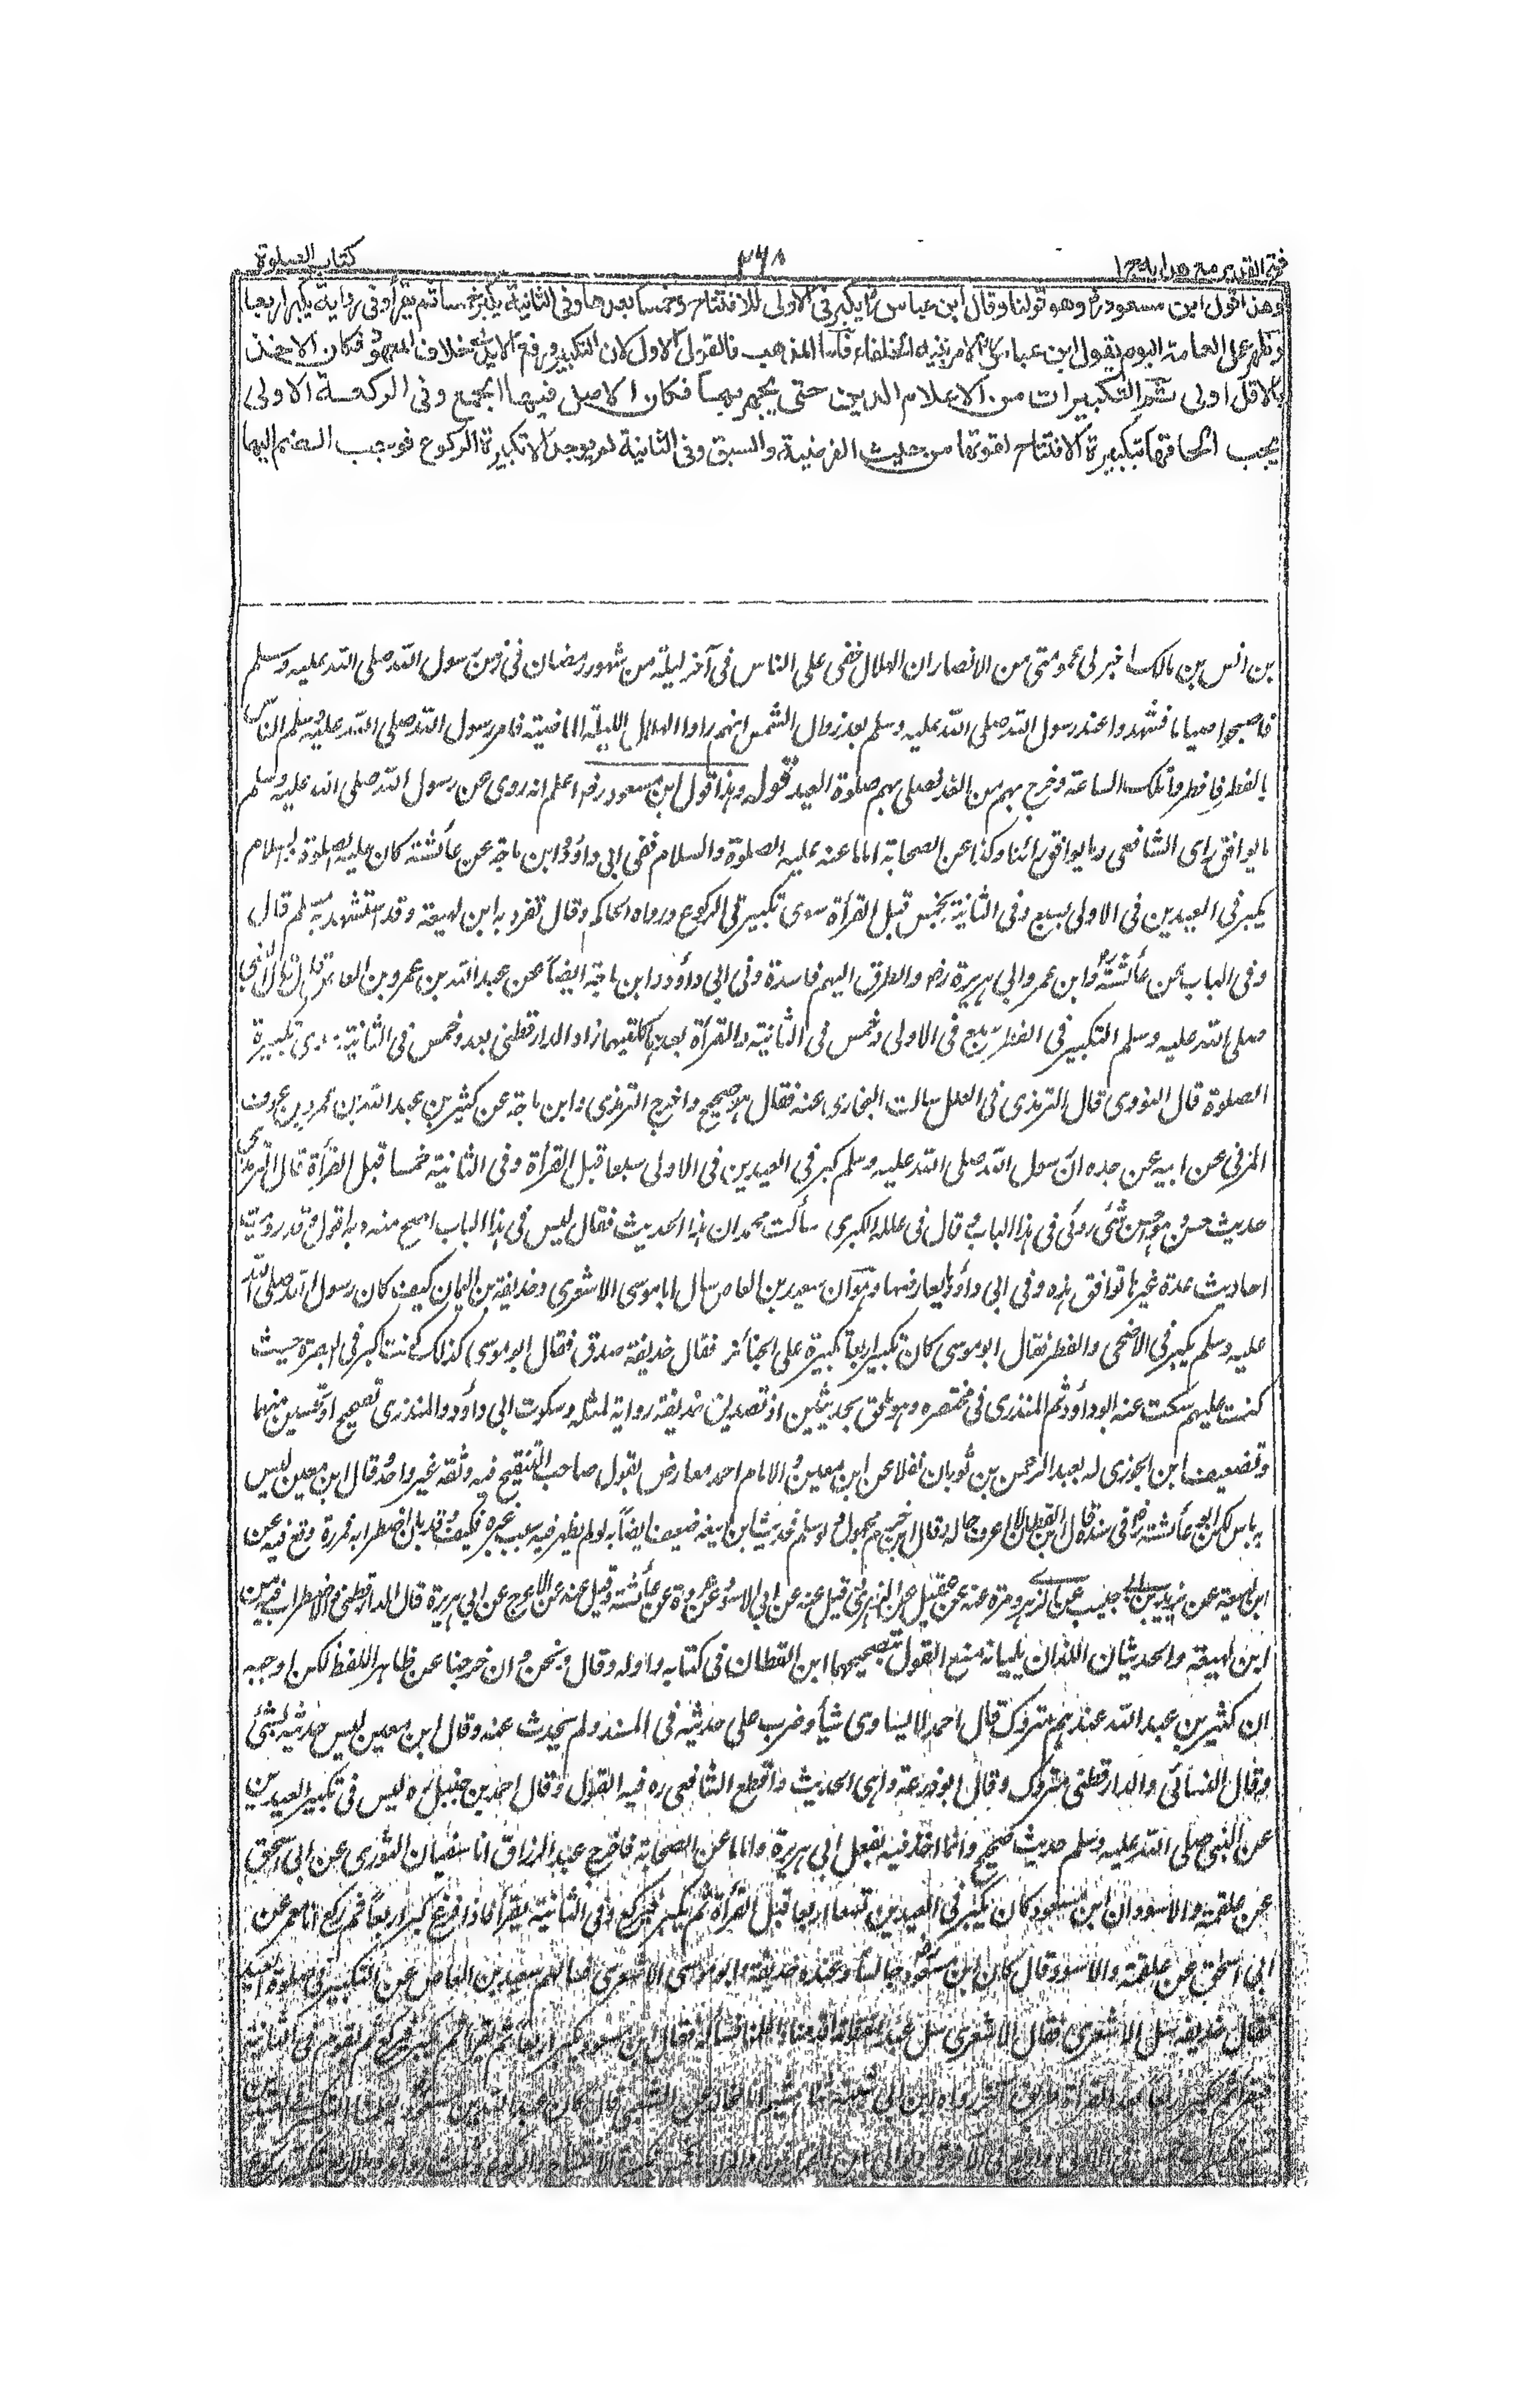 فتح القدير مع هدايه ج١ ٢٦٨ كتاب الصلوة
وهذا قول ابن مسعود رض وهو قولنا وقال ابن عباس رض يكبر فى الاولى للافتتاح وخمسا بعدها وفى الثانية يكبر خمسا ثم يقرأ وفى رواية يكبر اربعا
وظهر عمل العامة اليوم بقول ابن عباس لامر بنيه الخلفاء فاما المذهب فالقول الاول لان التكبير ورفع الايدى خلاف المعهود فكان الاخذ
بالاقل اولى ثم التكبيرات من الاعلام الدين حتى يجهر بها فكان الاصل فيها الجمع وفى الركعة الاولى
يجب الحاقها بتكبيرة الافتتاح لقوتها من حيث الفرضية والسبق وفى الثانية لم يوجد الا تكبيرة الركوع فوجب الضم اليها
بن انس بن مالك اخبرنى عمومتى من الانصار ان الهلال خفى على الناس فى آخر ليلة من شهر رمضان فى زمن رسول الله صلى الله عليه وسلم
فاصبحوا صياما فشهدوا عند رسول الله صلى الله عليه وسلم بعد زوال الشمس انهم راوا الهلال الليلة الماضية فامر رسول الله صلى الله عليه وسلم الناس
بالفطر فافطروا تلك الساعة وخرج بهم من الغد فصلى بهم صلوة العيد قوله وهذا قول ابن مسعود رض اعلم انه روى عن رسول الله صلى الله عليه وسلم
ما يوافق راى الشافعى وما يوافق رائنا وكذا عن الصحابة اما ما عنه عليه الصلوة والسلام ففى ابى داؤد وابن ماجة عن عائشة كان عليه الصلوة والسلام
يكبر فى العيدين فى الاولى بسبع وفى الثانية بخمس قبل القرأة سوى تكبيرتى الركوع ورواه الحاكم وقال تفرد به ابن لهيعة وقد استشهد به مسلم قال
وفى الباب عن عائشة رض وابن عمر وابى هريرة رض والطرق اليهم فاسدة وفى ابى داؤد وابن ماجة ايضا عن عبد الله بن عمرو بن العاص قال قال النبى
صلى الله عليه وسلم التكبير فى الفطر سبع فى الاولى وخمس فى الثانية والقرأة بعدهما كلتيهما زاد الدارقطنى بعد وخمس فى الثانية سوى تكبيرة
الصلوة قال النووى قال الترمذى فى العلل سالت البخارى عنه فقال هو صحيح واخرج الترمذى وابن ماجة عن كثير بن عبد الله بن عمرو بن عوف
المزنى عن ابيه عن جده ان رسول الله صلى الله عليه وسلم كبر فى العيدين فى الاولى سبعا قبل القرأة وفى الثانية خمسا قبل القرأة قال الترمذى
حديث حسن وهو احسن شئ روى فى هذا الباب وقال فى علله الكبرى سألت محمدا عن هذا الحديث فقال ليس فى هذا الباب اصح منه وبه اقول وقد رويت
احاديث عدة غيرها توافق هذه وفى ابى داؤد ما يعارضها وهو ان سعيد بن العاص سال ابا موسى الاشعرى وحذيفة بن اليمان كيف كان رسول الله صلى الله
عليه وسلم يكبر فى الاضحى والفطر فقال ابو موسى كان تكبير اربعا تكبيرة على الجنائز فقال حذيفة صدق فقال ابو موسى كذلك كنت اكبر فى البصرة حيث
كنت عليهم سكت عنه ابو داؤد ثم المنذرى فى مختصره وهو ملحق بحديثين اذ تصديق حذيفة رواية لمثله وسكوت ابى داؤد والمنذرى تصحيح او تحسين منهما
وتضعيف ابن الجوزى له بعبد الرحمن بن ثوبان نقلا عن ابن معين والامام احمد معارض بقول صاحب التنقيح فيه وثقه غير واحد قال ابن معين ليس
به باس لكن ابو عائشة فى سنده قال ابن القطان لا اعرف حاله وقال ابن حزم مجهول ولو سلم فحديث ابن لهيعة ضعيف ايضا به لو لم يظهر فيه سبب غيره فكيف وقد بان اضطرابه فمرة وقع فيه عن
ابن لهيعة عن يزيد بن ابى حبيب عن الزهرى ومرة عنه عن عقيل عن الزهرى وقيل عنه عن ابى الاسود عن عروة عن عائشة وقيل عنه عن الاعرج عن ابى هريرة قال الدارقطنى والاضطراب فيه من
ابن لهيعة والحديثان اللذان يليانه منع القول بتصحيحهما ابن القطان فى كتابه واوله وقال ونحن وان خرجنا عن ظاهر اللفظ لكن اوجبه
ان كثير بن عبد الله عندهم متروك قال احمد لا يساوى شيأ وضرب على حديثه فى المسند ولم يحدث عنه وقال ابن معين ليس حديثه بشئ
وقال النسائى والدارقطنى متروك وقال ابو زرعة واهى الحديث واقطع الشافعى ره فيه القول وقال احمد بن حنبل ره ليس فى تكبير العيدين
عن النبى صلى الله عليه وسلم حديث صحيح وانما اخذ فيه بفعل ابى هريرة واما ما عن الصحابة فاخرج عبد الرزاق انا سفيان الثورى عن ابى اسحق
عن علقمة والاسود ان ابن مسعود كان يكبر فى العيدين تسعا اربعا قبل القرأة ثم يكبر فيركع وفى الثانية يقرأ فاذا فرغ كبر اربعا ثم ركع انا معمر عن
ابى اسحق عن علقمة والاسود قال كان ابن مسعود جالسا وعنده حذيفة وابو موسى الاشعرى فسالهم سعيد بن العاص عن التكبير فى صلوة العيد
فقال حذيفة سل الاشعرى فقال الاشعرى سل عبد الله فانه اقدمنا واعلمنا فسأله فقال ابن مسعود يكبر اربعا ثم يقرأ ثم يكبر فيركع ثم يقوم فى الثانية
فيقرأ ثم يكبر اربعا بعد القرأة طريق آخر رواه ابن ابى شيبة ثنا هشيم انا مجالد عن الشعبى قال كان عبد الله بن مسعود